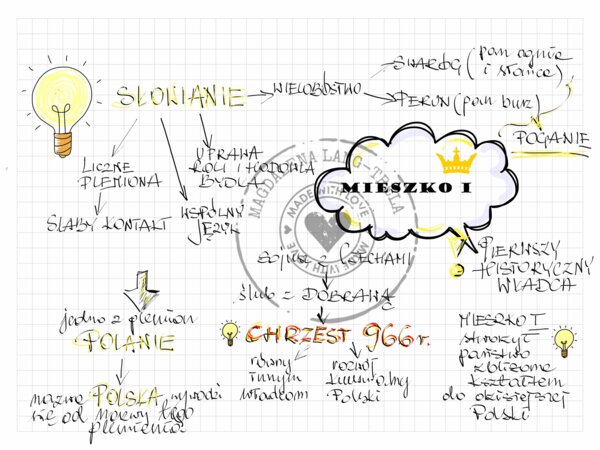 SŁOWIANIE → WIELOBÓSTWO
SWARÓG (pan ognia
i słońca)
PERUN (pan burz)
POGANIE
LICZNE
PLEMIONA
SŁABY KONTAKT
UPRAWA
ROLI I HODOWLA
BYDŁA
WSPÓLNY
JĘZYK
MIESZKO I
PIERWSZY
HISTORYCZNY
WŁADCA
sojusz z Czechami
ślub z DOBRAWĄ
CHRZEST 966 r.
równy
innym
władcom
rozwój
kulturalny
Polski
jedno z plemion
POLANIE
nazwa POLSKA wywodzi
się od nazwy tego
plemienia
MIESZKO I
stworzył
państwo
zbliżone
kształtem
do dzisiejszej
Polski
MAGDALENA LANG-
MADE WITH LOVE
MADE WITH LOVE